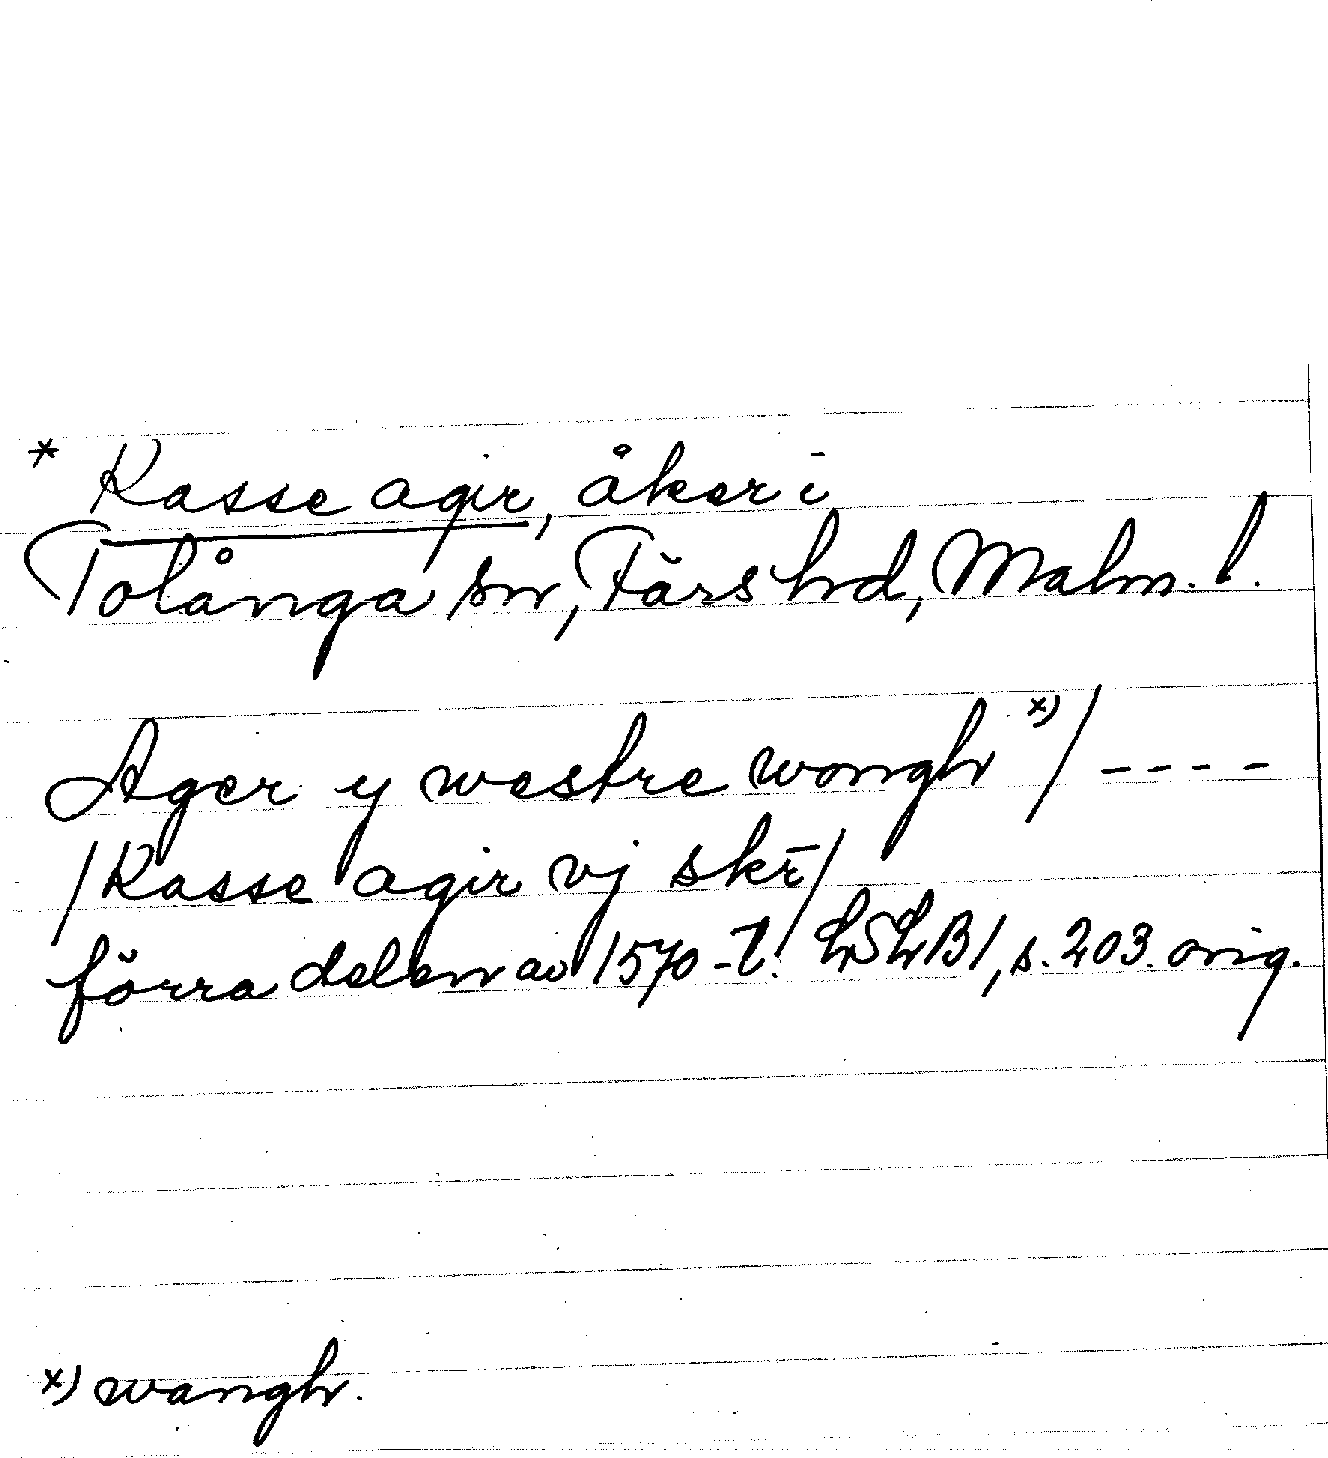 * Kasse agir, åker i
Tolånga sn, Färs hd, Malm. l.
Ager y westre wongh x) / ----
/ Kasse agir vj skr̄ /
förra delen av 1570-t. LSLB 1, s. 203. orig.
x) wangh.